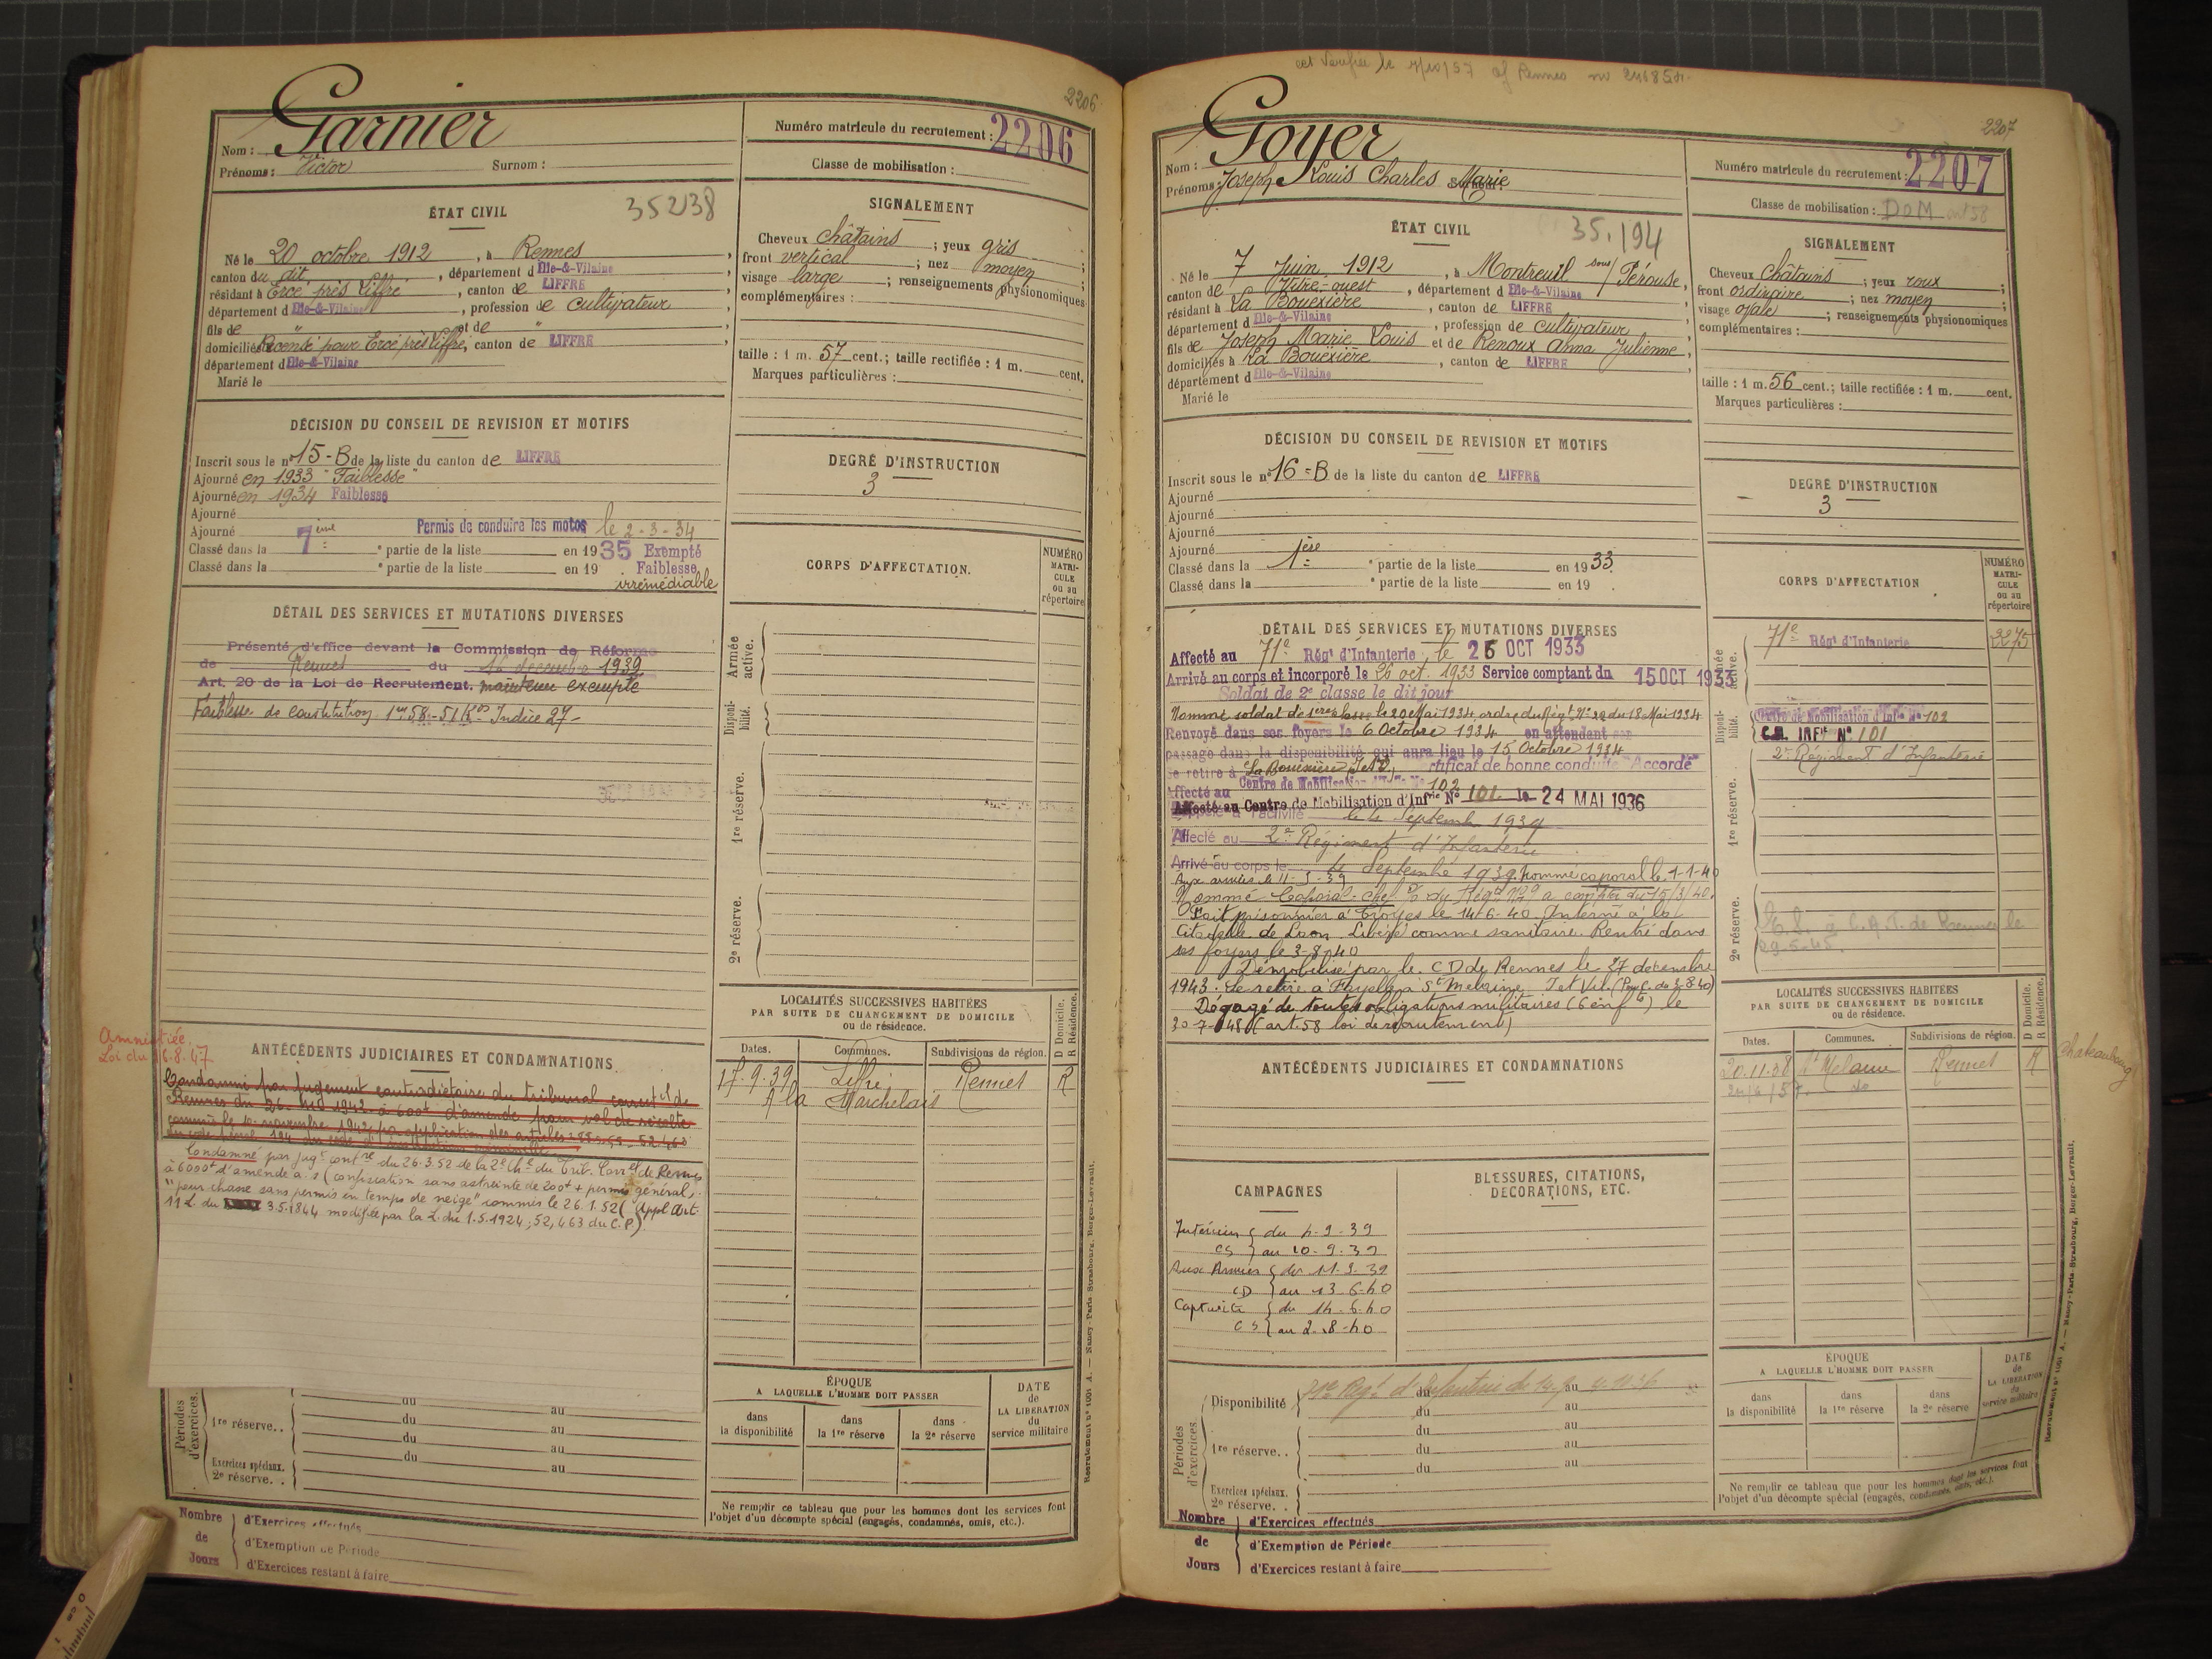 2206
Garnier
Nom :
Prénoms : Victor Surnom :
Numéro matricule du recrutement : 2206
Classe de mobilisation :
ÉTAT CIVIL 35238
Né le 20 octobre 1912, à Rennes
canton du dit, département d Ille-&-Vilaine
résidant à Ercé près Liffré, canton de LIFFRE
département d Ille-&-Vilaine, profession de cultivateur
fils de " et de "
domiciliés Recensé pour Ercé près Liffré, canton de LIFFRE
département d Ille-&-Vilaine
Marié le
SIGNALEMENT
Cheveux châtains ; yeux gris ;
front vertical ; nez moyen ;
visage large ; renseignements physionomiques
complémentaires :
taille : 1 m. 57 cent.; taille rectifiée : 1 m. cent.
Marques particulières :
DÉCISION DU CONSEIL DE REVISION ET MOTIFS
Inscrit sous le n° 15-B de la liste du canton de LIFFRE
Ajourné en 1933 "Faiblesse"
Ajourné en 1934 Faiblesse
Ajourné
Ajourné Permis de conduire les motos le 2-3-34
Classé dans la 7ème partie de la liste en 1935 Exempté
Classé dans la partie de la liste en 19 Faiblesse
irrémédiable
DEGRÉ D'INSTRUCTION
3
CORPS D'AFFECTATION.
NUMÉRO MATRICULE ou au répertoire
DÉTAIL DES SERVICES ET MUTATIONS DIVERSES
Présenté d'office devant la Commission de Réforme
de Rennes du 16 décembre 1939
Art. 20 de la Loi de Recrutement. maintenu exempté
Faiblesse de constitution 1m58 - 51 Kos Indice 27 -
Armée active.
Disponibilité.
1re réserve.
2e réserve.
Amnistiée.
Loi du 16.8.47
ANTÉCÉDENTS JUDICIAIRES ET CONDAMNATIONS
Condamné par jugement contradictoire du tribunal correctel de
Rennes du 26 1943 à 600f d'amende pour vol de récolte
commis le novembre 1942 par application des articles
Condamné par jugt contre du 26.3.52 de la 2e Che du Trib. Correl de Rennes
à 6000f d'amende a.s (confiscation sans astreinte de 200f + permis général,
"pour chasse sans permis en temps de neige" commis le 26.1.52 (Appl Art.
11 L. du 3.5.1844 modifiée par la L. du 1.5.1924; 52, 463 du C.P)
LOCALITÉS SUCCESSIVES HABITÉES
PAR SUITE DE CHANGEMENT DE DOMICILE
ou de résidence.
D Domicile.
R Résidence.
Dates. Communes. Subdivisions de région.
17.9.39 Liffré Rennes R
A la Marchelais
Périodes d'exercices.
du au
1re réserve.. du au
du au
du au
Exercices spéciaux.
2e réserve. .
ÉPOQUE
A LAQUELLE L'HOMME DOIT PASSER
dans la disponibilité
dans la 1re réserve
dans la 2e réserve
DATE de LA LIBÉRATION du service militaire
Ne remplir ce tableau que pour les hommes dont les services font
l'objet d'un décompte spécial (engagés, condamnés, omis, etc.).
Nombre de Jours
d'Exercices effectués
d'Exemption de Période
d'Exercices restant à faire
Recrutement n° 1001 A. — Nancy-Paris-Strasbourg, Berger-Levrault.
2207
Goyer
Nom :
Prénoms : Joseph Louis Charles Marie Surnom :
Numéro matricule du recrutement : 2207
Classe de mobilisation : DOM art 58
ÉTAT CIVIL 35.194
Né le 7 Juin 1912, à Montreuil sous/Pérouse,
canton de Vitré-ouest, département d Ille-&-Vilaine
résidant à La Bouëxière, canton de LIFFRE
département d Ille-&-Vilaine, profession de cultivateur
fils de Joseph Marie Louis et de Renoux Anna Julienne,
domiciliés à La Bouëxière, canton de LIFFRE
département d Ille-&-Vilaine
Marié le
SIGNALEMENT
Cheveux châtains ; yeux roux ;
front ordinaire ; nez moyen ;
visage ovale ; renseignements physionomiques
complémentaires :
taille : 1 m. 56 cent.; taille rectifiée : 1 m. cent.
Marques particulières :
DÉCISION DU CONSEIL DE REVISION ET MOTIFS
Inscrit sous le n° 16-B de la liste du canton de LIFFRE
Ajourné
Ajourné
Ajourné
Ajourné
Classé dans la 1ère partie de la liste en 1933.
Classé dans la partie de la liste en 19 .
DEGRÉ D'INSTRUCTION
3
CORPS D'AFFECTATION
NUMÉRO MATRICULE ou au répertoire
DÉTAIL DES SERVICES ET MUTATIONS DIVERSES
Affecté au 71e Régt d'Infanterie le 26 OCT 1933
Arrivé au corps et incorporé le 26 oct. 1933 Service comptant du 15 OCT 1933
Soldat de 2e classe le dit jour
Nommé soldat de 1ère classe le 20 Mai 1934, ordre du Régt N° 20 du 18 Mai 1934
Renvoyé dans ses foyers le 6 Octobre 1934 en attendant son
passage dans la disponibilité qui aura lieu le 15 Octobre 1934
Se retire à La Bouëxière I et V. rtificat de bonne conduite "Accordé"
Affecté au Centre de Mobilisation 102
Affecté au Centre de Mobilisation d'Infrie N° 101 le 24 MAI 1936
Rappelé à l'activité le 4 Septembre 1939
Affecté au 2e Régiment d'Infanterie
Arrivé au corps le 4 Septembre 1939. Nommé caporal le 1-1-40
Aux armées le 11-9-39
Nommé Caporal-chef à compter du 15/3/40.
Fait prisonnier à Troyes le 14-6-40. Interné à la
Citadelle de Laon. Libéré comme sanitaire. Rentré dans
ses foyers le 3-8-40
Démobilisé par le CD de Rennes le 27 décembre
1943. Se retire à Fayelle à St Melaine I et Vil.
Dégagé de toutes obligations militaires (6 enfts) le
30-7-48 (art. 58 loi de recrutement)
Armée active.
71e Régt d'Infanterie 2275
Disponibilité.
Centre de Mobilisation d'Infie N° 102
C.M. INFie N° 101
1re réserve.
2e Régiment d'Infanterie
2e réserve.
C.A.T. de Rennes le
ANTÉCÉDENTS JUDICIAIRES ET CONDAMNATIONS
LOCALITÉS SUCCESSIVES HABITÉES
PAR SUITE DE CHANGEMENT DE DOMICILE
ou de résidence.
D Domicile.
R Résidence.
Dates. Communes. Subdivisions de région.
20.11.38 St Melaine Rennes R
Chateaubourg
CAMPAGNES
Intérieur { du 4-9-39
CS } au 10-9-39
Aux Armées { du 11-9-39
CD } au 13-6-40
Captivité { du 14-6-40
CS } au 2-8-40
BLESSURES, CITATIONS, DÉCORATIONS, ETC.
Périodes d'exercices.
Disponibilité du au
du au
1re réserve. . du au
du au
Exercices spéciaux.
2e réserve. .
ÉPOQUE
A LAQUELLE L'HOMME DOIT PASSER
dans la disponibilité
dans la 1re réserve
dans la 2e réserve
DATE de LA LIBÉRATION du service militaire
Ne remplir ce tableau que pour les hommes dont les services font
l'objet d'un décompte spécial (engagés, condamnés, omis, etc.).
Nombre de Jours
d'Exercices effectués
d'Exemption de Période
d'Exercices restant à faire
Recrutement n° 1001 A. — Nancy-Paris-Strasbourg, Berger-Levrault.